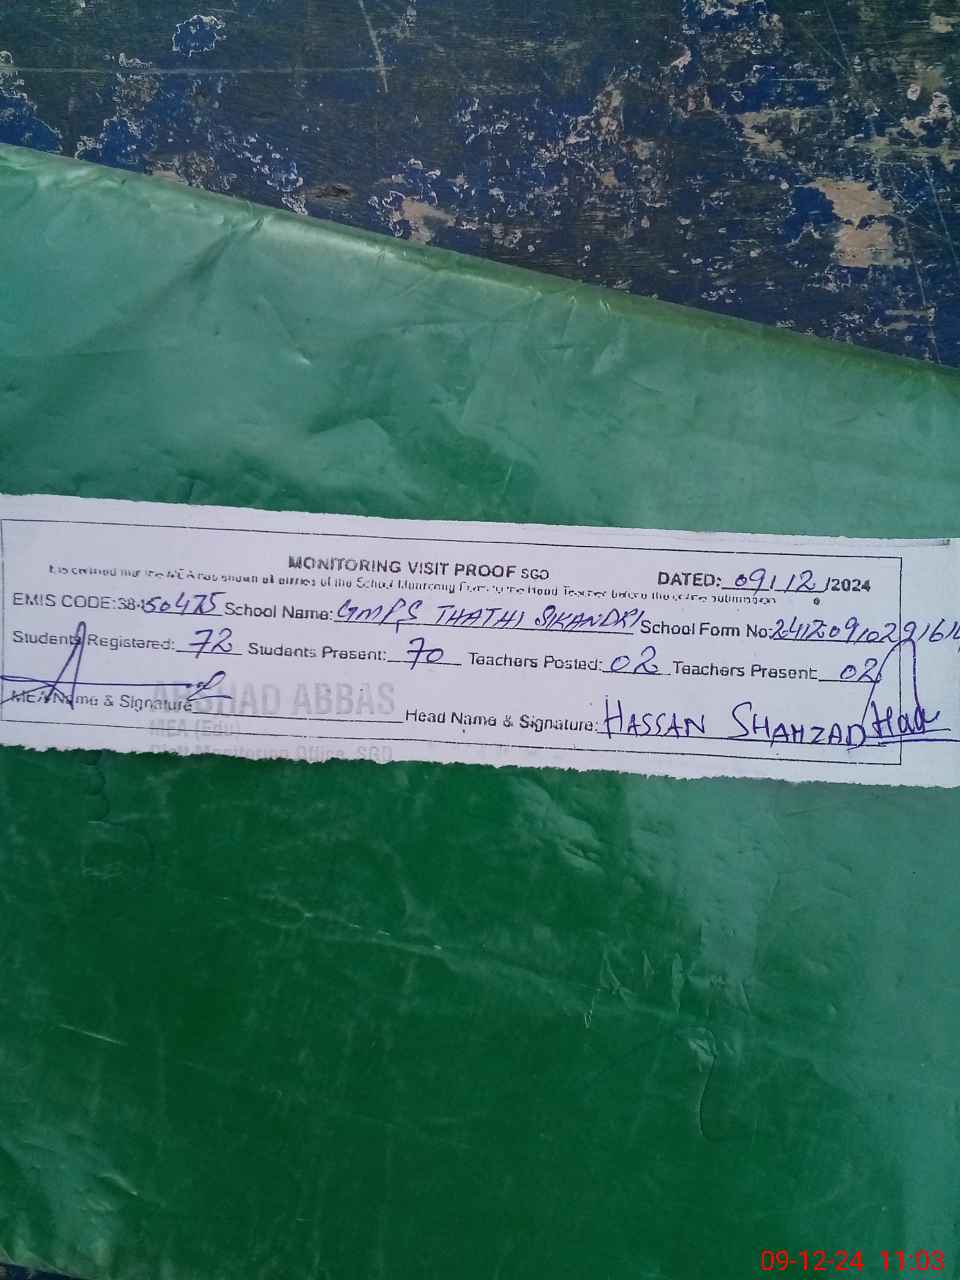 MONITORING VISIT PROOF SGD
DATED: 09/12/2024
It is certified that the MEA has shown all entries of the School Monitoring Form to the Head Teacher before the submission
EMIS CODE:384-50475 School Name: GMPS THATHI SIKANDRI School Form No:
Students Registered: 72 Students Present: 70 Teachers Posted: 02 Teachers Present: 02
MEA Name & Signature Head Name & Signature: HASSAN SHAHZAD
ARSHAD ABBAS
MEA (Edu)
Monitoring Office, SGD
09-12-24 11:03